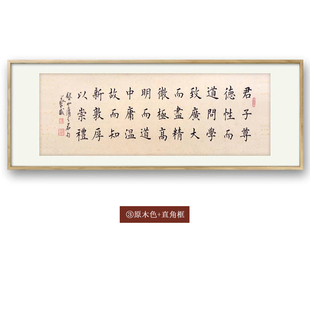 君子尊
德性而
道問學
致廣大
而盡精
微極高
明而道
中庸溫
故而知
新敦厚
以崇禮
③原木色+直角框